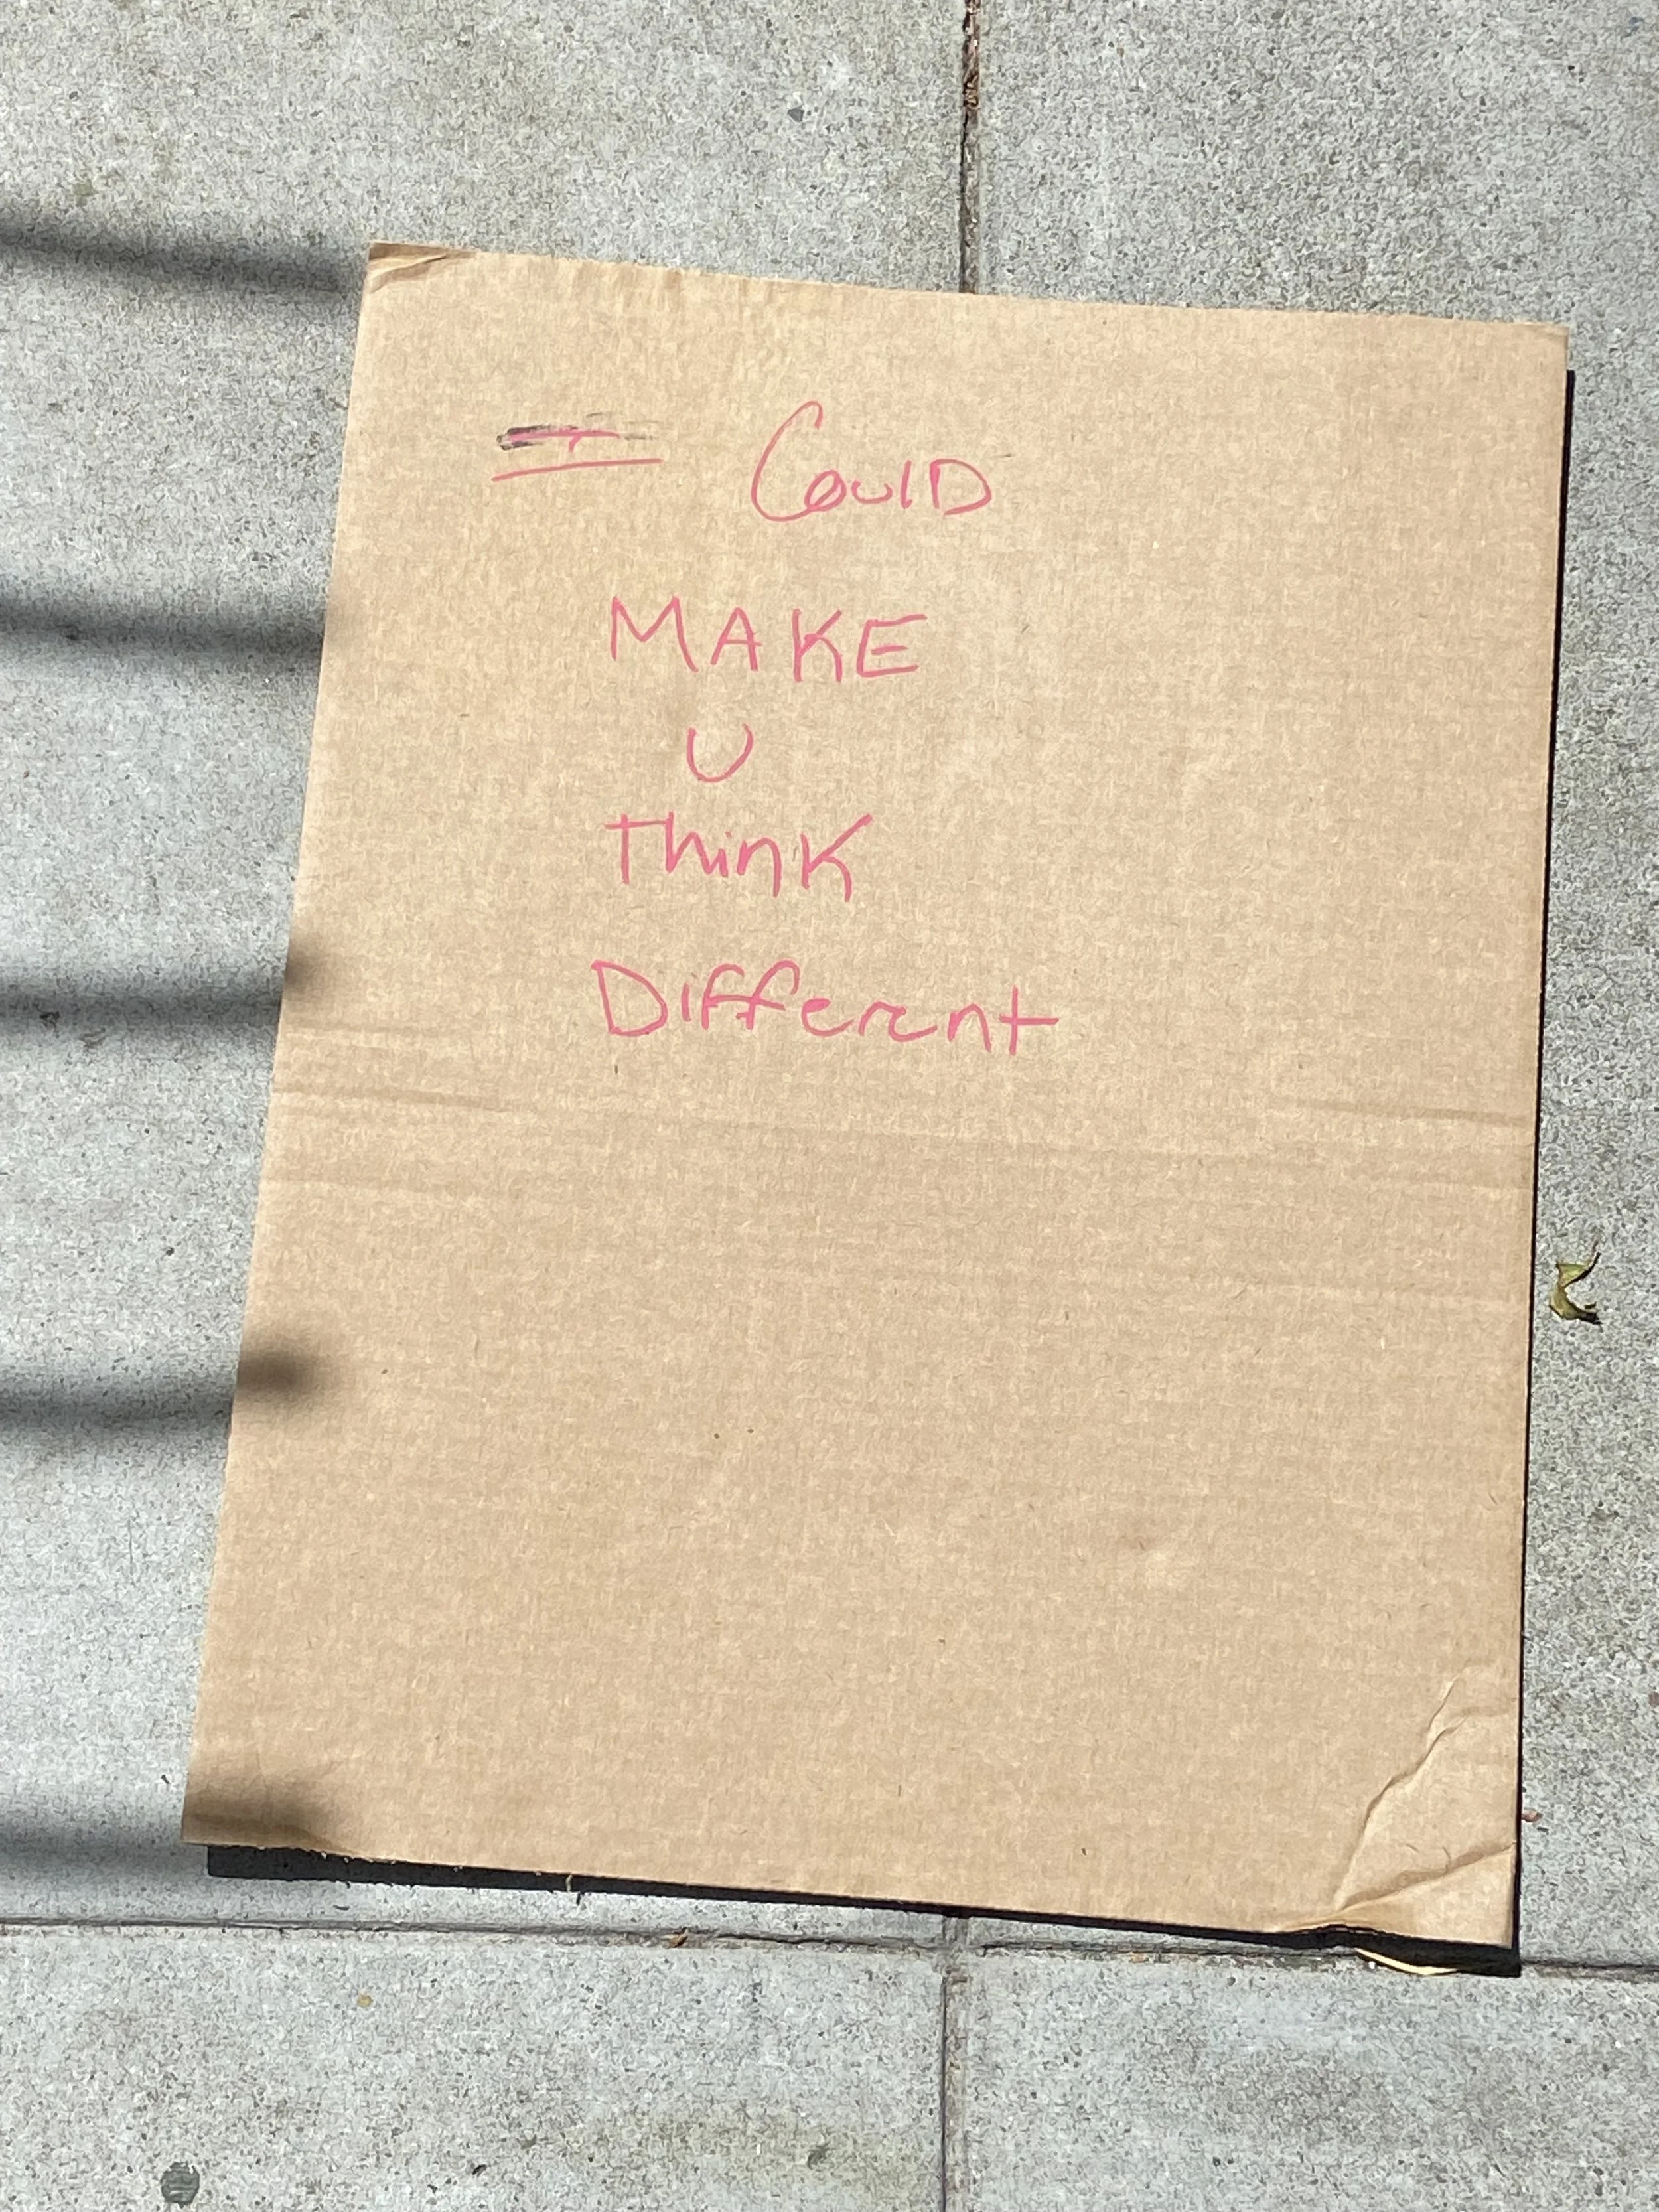 I Could
MAKE
U
Think
Different